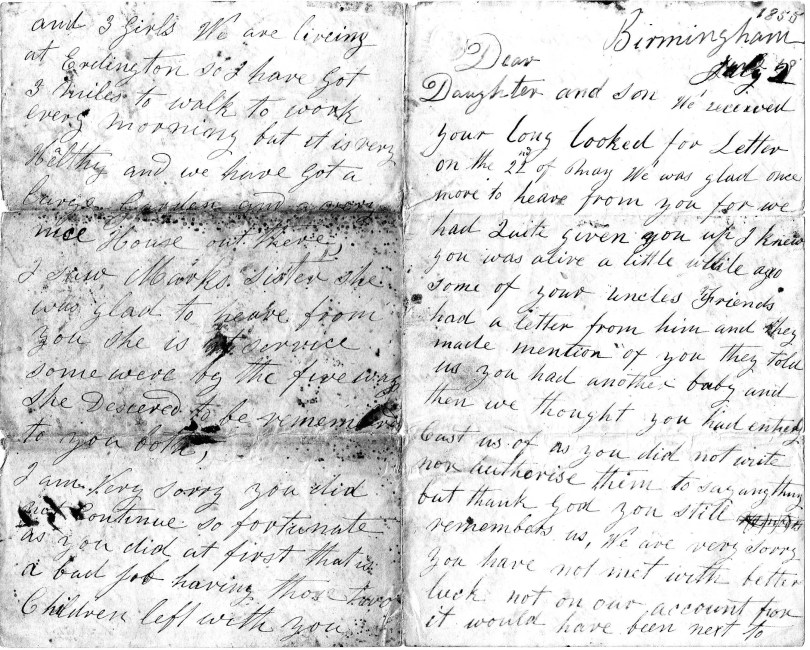 1858
Birmingham
July 2
Dear
Daughter and son We received
your Long Looked for Letter
on the 22nd of May We was glad once
more to heare from you for we
had Quite given you up I knew
you was alive a little while ago
some of your uncles Friends
had a letter from him and they
made mention of you they told
us you had another baby and
then we thought you had entirely
Cast us of as you did not write
nor autherise them to say anything
but thank God you still
remembers us, We are very sorry
you have not met with better
luck not on our account for
it would have been next to
and 3 Girls We are liveing
at Erdington so I have Got
3 miles to walk to work
every morning but it is very
Healthy and we have Got a
Large Garden and a very
nice House out there,
I saw Marks Sister she
was glad to heare from
you she is service
some were by the five way
she Desiered to be remember
to you both,
I am Very sorry you did
not Continue so fortunate
as you did at first that is
a bad job having those two
Children left with you